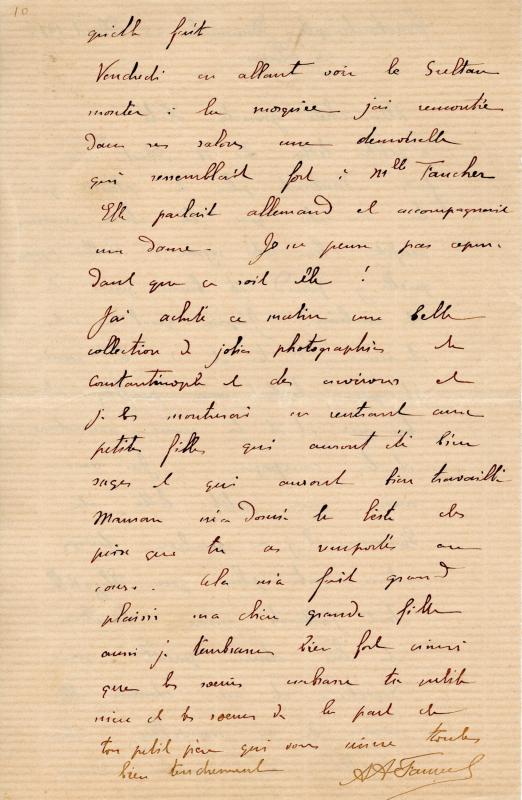 10
qu'elle fait
Vendredi en allant voir le Sultan
monter à la mosquée j'ai rencontré
dans ses salons une demoiselle
qui ressemblait fort à Mlle Faucher
Elle parlait allemand et accompagnait
une dame. Je ne pense pas cepen-
dant que ce soit elle !
J'ai acheté ce matin une belle
collection de jolies photographies de
Constantinople et des environs et
je les montrerai en rentrant aux
petites filles qui auront été bien
sages et qui auront bien travaillé
Maman m'a donné la liste des
prix que tu as remportés au
cours. Cela m'a fait grand
plaisir ma chère grande fille
aussi je t'embrasse bien fort ainsi
que les sœurs embrasse ta petite
mère et les sœurs de la part de
ton petit père qui vous aime toutes
bien tendrement